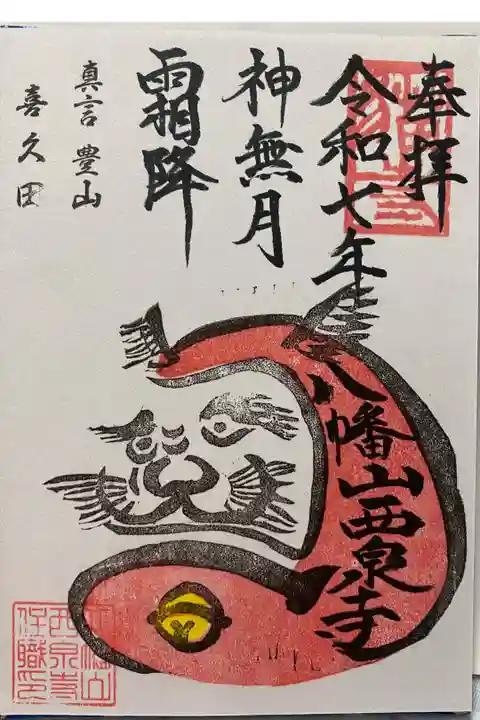 奉拝
令和七年
八幡山西泉寺
神無月
霜降
真言豊山
喜久田
八幡山
西泉寺
住職印